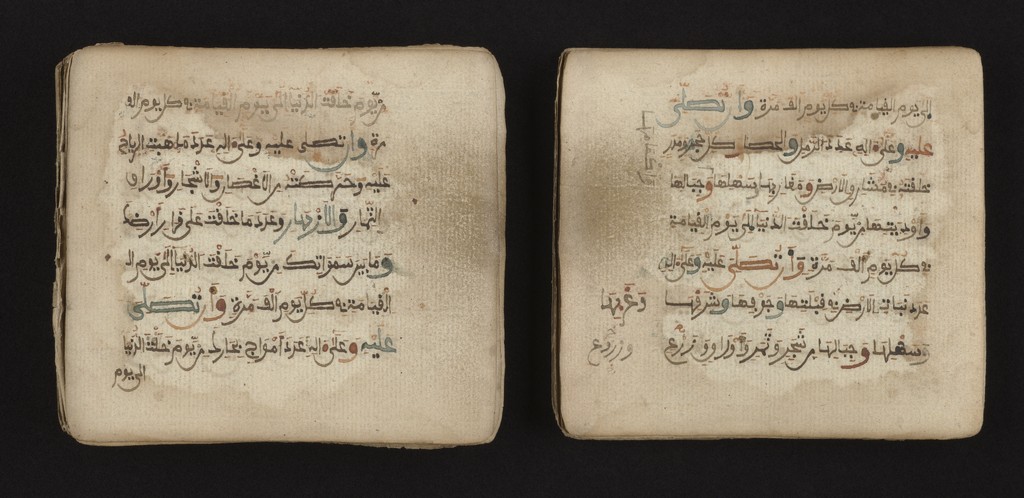 من يوم خلقت الدنيا الى يوم القيامة في كل يوم الف
مرة وان تصلى عليه وعلى اله عدد ما هبت الرياح
عليه وحركته من الاغصان والاشجار واوراق
الثمار والازهار وعدد ما خلقت على قرار ارضك
وما بين سمواتك من يوم خلقت الدنيا الى يوم ا
القيامة في كل يوم الف مرة وان تصلى
عليه وعلى اله عدد امواج بحارك من يوم خلقت الدنيا
الى يوم
الى يوم القيامة في كل يوم الف مرة وان تصلى
عليه وعلى اله عدد الرمل والحصى وكل حجر ومدر
خلقته في مشارق الارض ومغاربها وسهلها وجبالها
واوديتها من يوم خلقت الدنيا الى يوم القيامة
في كل يوم الف مرة وان تصلى عليه وعلى اله
عدد نبات الارض في قبلتها وجوفها وشرقها وغربها
وسهلها وجبالها من شجر وثمر واوراق وزرع
وزروع